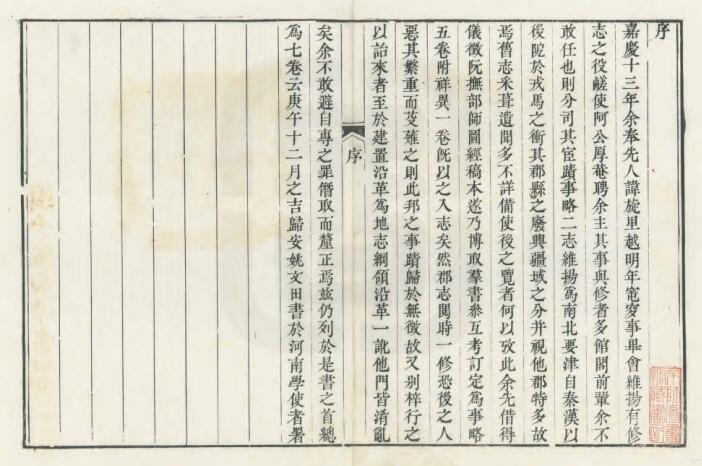 序
嘉慶十三年余奉先人諱旋里越明年窀穸事畢會維揚有修
志之役鹺使阿公厚菴聘余主其事與修者多館閣前輩余不
敢任也則分司其宦蹟事略二志維揚爲南北要津自秦漢以
後阨於戎馬之衝其郡縣之廢興疆域之分并視他郡特多故
焉舊志釆葺遺聞多不詳備使後之覽者何以攷此余先借得
儀徵阮撫部師圖經稿本遂乃博取羣書參互考訂定爲事略
五卷附祥異一卷旣以之入志矣然郡志閱時一修恐後之人
惡其繁重而芟薙之則此邦之事蹟歸於無徵故又别梓行之
以詒來者至於建置沿革爲地志綱領沿革一訛他門皆淆亂
序
矣余不敢避自專之罪僭取而釐正焉兹仍列於是書之首總
爲七卷云庚午十二月之吉歸安姚文田書於河南學使者署